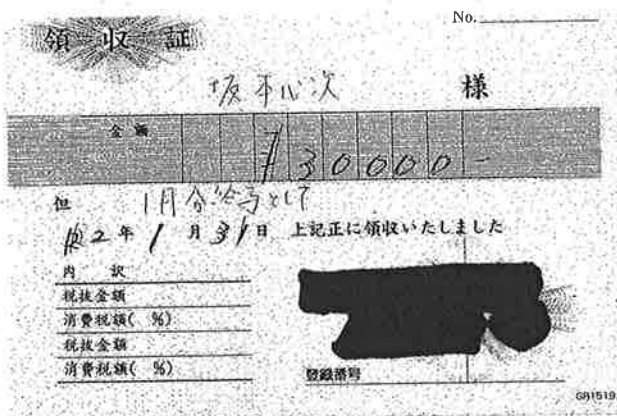 No.
領収証
坂本心次 様
金額 ¥30000-
但 1月分給与として
R2年1月31日 上記正に領収いたしました
内訳
税抜金額
消費税額( %)
税抜金額
消費税額( %)
登録番号